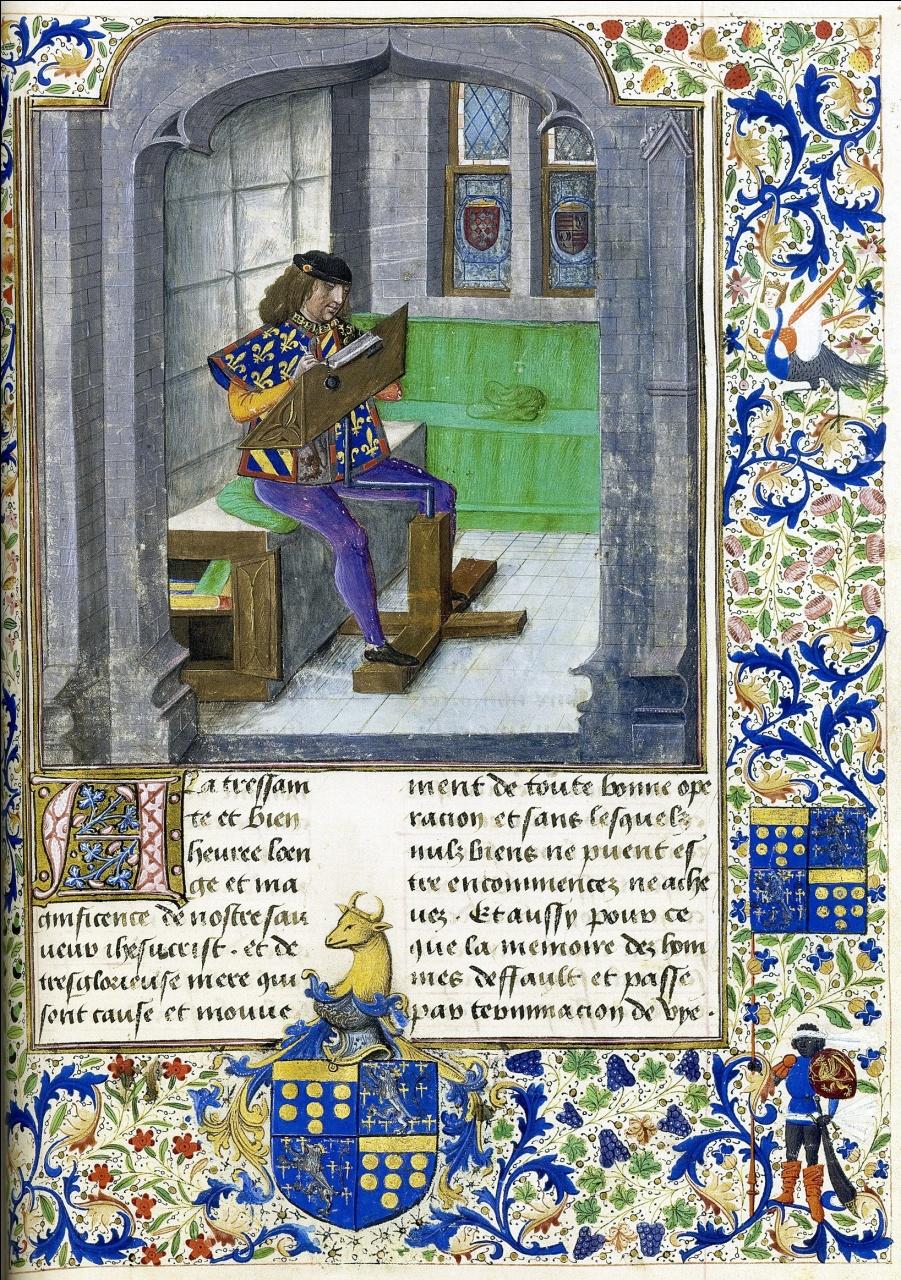 A La tressain
te et bien
heuree loen
ge et ma
gnificence de nostre sau
ueur ihesucrist. et de
tresglorieuse mere qui
sont cause et mouue
ment de toute bonne ope
racion et sans lesquelz
nulz biens ne puent es
tre encommencez ne ache
uez. Et aussy pour ce
que la memoire dez hom
mes deffault et passe
par terminacion de vye.